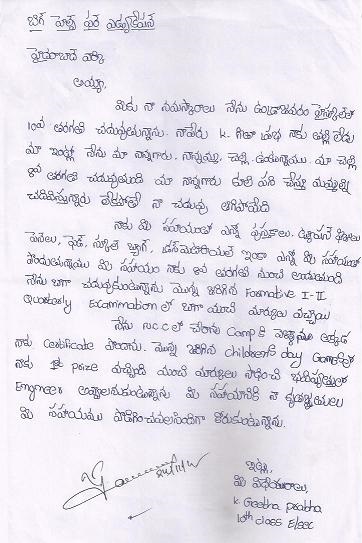 బిగ్ హెల్ప్ ఫర్ ఎడ్యుకేషన్
హైదరాబాద్ వారికి
అయ్యా,
మీకు నా నమస్కారాలు నేను ఉండ్రాజవరం హైస్కూల్ లో
10వ తరగతి చదువుతున్నాను. నాపేరు K. గీతా ప్రభ నాకు తల్లి లేదు
మా ఇంట్లో నేను మా నాన్నగారు, నాన్నమ్మ, చెల్లి ఉంటున్నాము. మా చెల్లి
8వ తరగతి చదువుతుంది మా నాన్నగారు కూలి పని చేస్తూ మమ్మల్ని
చదివిస్తున్నారు లేకపోతే నా చదువు ఆగిపోయేది
నాకు మీ సహాయంతో ఎన్నో పుస్తకాలు, ట్యూషన్ ఫీజులు
పెన్నులు, స్కూల్ బ్యాగ్, ఇంకా ఎన్నో మీ సహాయంతో
పొందుతున్నాము మీ సహాయం నాకు 8వ తరగతి నుంచి అందుతుంది
నేను బాగా చదువుకుంటున్నాను మొన్న జరిగిన Formative I-II
Quarterly Examination లో బాగా మంచి మార్కులు వచ్చాయి
నేను N.C.C లో చేరాను Camp కి వెళ్ళాము అక్కడ
నాకు Certificate పొందాను. మొన్న జరిగిన Children's day Games లో
నాకు 1st prize వచ్చింది మంచి మార్కులు సాధించి భవిష్యత్తులో
Engineer అవ్వాలనుకుంటున్నాను మీ సహాయానికి నా కృతజ్ఞతలు
మీ సహాయము పొడిగించవలసిందిగా కోరుకుంటున్నాను.
ఇట్లు,
మీ విధేయురాలు,
K Geetha prabha
10th class E/sec